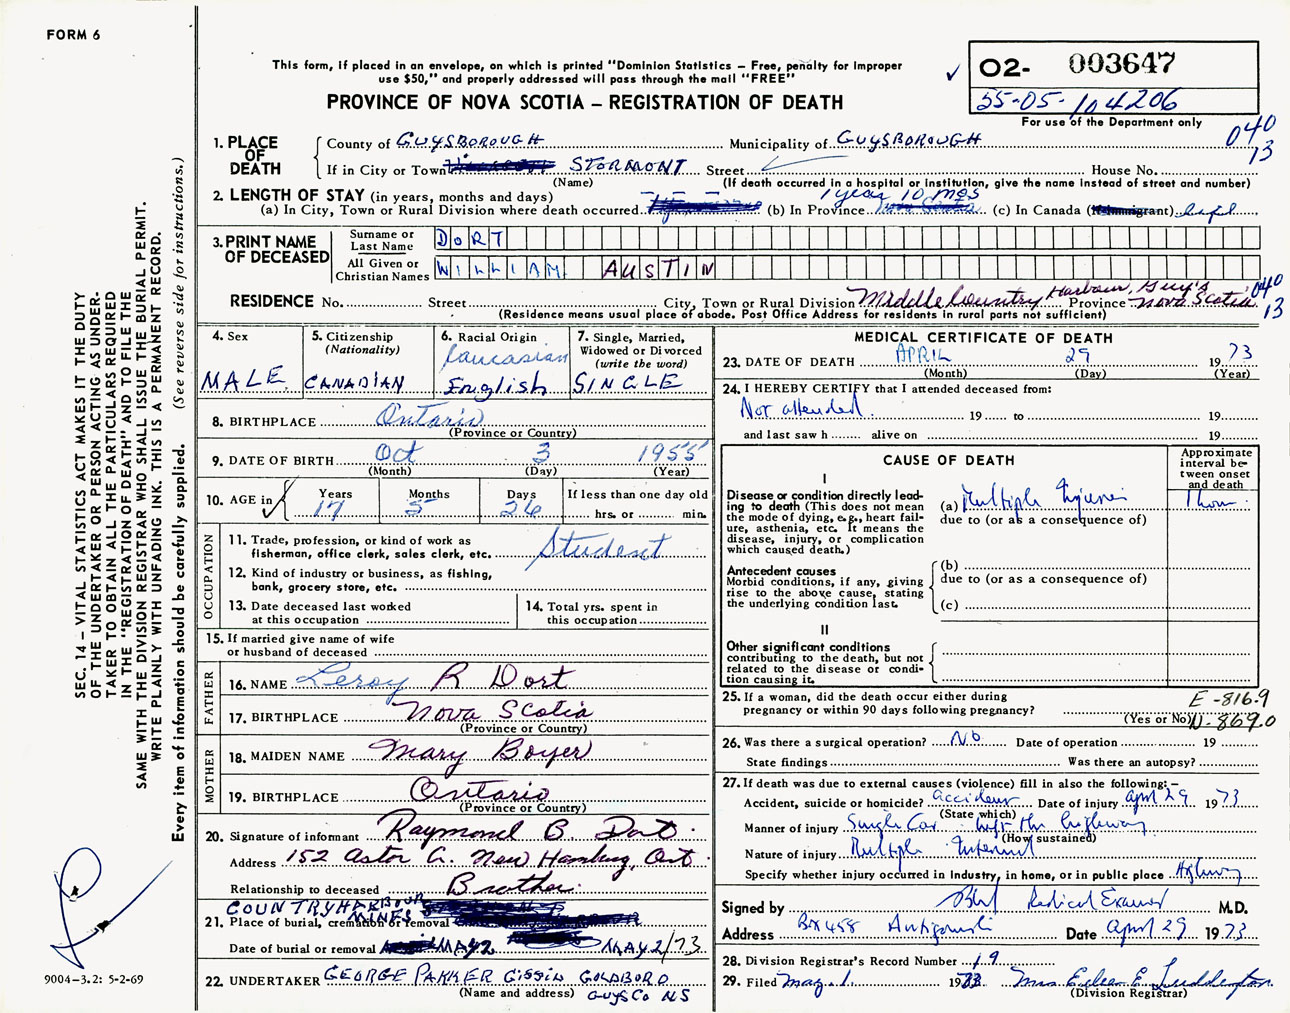 FORM 6
This form, if placed in an envelope, on which is printed "Dominion Statistics – Free, penalty for improper
use $50," and properly addressed will pass through the mail "FREE"
PROVINCE OF NOVA SCOTIA – REGISTRATION OF DEATH
O2- 003647
55-05-104206
For use of the Department only
040
13
SEC. 14 – VITAL STATISTICS ACT MAKES IT THE DUTY
OF THE UNDERTAKER OR PERSON ACTING AS UNDER-
TAKER TO OBTAIN ALL THE PARTICULARS REQUIRED
IN THE "REGISTRATION OF DEATH" AND TO FILE THE
SAME WITH THE DIVISION REGISTRAR WHO SHALL ISSUE THE BURIAL PERMIT.
WRITE PLAINLY WITH UNFADING INK. THIS IS A PERMANENT RECORD.
Every item of information should be carefully supplied. (See reverse side for instructions.)
1. PLACE OF DEATH
County of GUYSBOROUGH Municipality of GUYSBOROUGH
If in City or Town STORMONT Street House No.
(Name) (If death occurred in a hospital or institution, give the name instead of street and number)
2. LENGTH OF STAY (in years, months and days) 1 year 10 mos
(a) In City, Town or Rural Division where death occurred (b) In Province (c) In Canada (If Immigrant) Life
3. PRINT NAME OF DECEASED
Surname or Last Name DORT
All Given or Christian Names WILLIAM AUSTIN
RESIDENCE No. Street City, Town or Rural Division Middle Country Harbour, Guy's Province Nova Scotia
040
13
(Residence means usual place of abode. Post Office Address for residents in rural parts not sufficient)
4. Sex
MALE
5. Citizenship
(Nationality)
CANADIAN
6. Racial Origin
Caucasian
English
7. Single, Married,
Widowed or Divorced
(write the word)
SINGLE
8. BIRTHPLACE Ontario
(Province or Country)
9. DATE OF BIRTH Oct 3 1955
(Month) (Day) (Year)
10. AGE in Years Months Days If less than one day old
17 5 26 hrs. or min.
OCCUPATION
11. Trade, profession, or kind of work as
fisherman, office clerk, sales clerk, etc. Student
12. Kind of industry or business, as fishing,
bank, grocery store, etc.
13. Date deceased last worked
at this occupation
14. Total yrs. spent in
this occupation
15. If married give name of wife
or husband of deceased
FATHER
16. NAME Leroy R Dort
17. BIRTHPLACE Nova Scotia
(Province or Country)
MOTHER
18. MAIDEN NAME Mary Boyer
19. BIRTHPLACE Ontario
(Province or Country)
20. Signature of informant Raymond B Dort
Address 152 Astor Cr. New Hamburg, Ont
Relationship to deceased Brother
COUNTRY HARBOUR
MINES
21. Place of burial, cremation or removal
Date of burial or removal MAY 2 MAY 2/73
22. UNDERTAKER GEORGE PARKER GOLDBORO
(Name and address) GUYS CO NS
9004-3.2: 5-2-69
MEDICAL CERTIFICATE OF DEATH
23. DATE OF DEATH APRIL 29 1973
(Month) (Day) (Year)
24. I HEREBY CERTIFY that I attended deceased from:
Not attended 19 to 19
and last saw h alive on 19
CAUSE OF DEATH
Approximate
interval be-
tween onset
and death
I
Disease or condition directly lead-
ing to death (This does not mean
the mode of dying, e.g., heart fail-
ure, asthenia, etc. It means the
disease, injury, or complication
which caused death.)
(a) Multiple Injuries 1 hour
due to (or as a consequence of)
Antecedent causes
Morbid conditions, if any, giving
rise to the above cause, stating
the underlying condition last.
(b)
due to (or as a consequence of)
(c)
II
Other significant conditions
contributing to the death, but not
related to the disease or condi-
tion causing it.
25. If a woman, did the death occur either during
pregnancy or within 90 days following pregnancy?
(Yes or No)
E-816.9
N-869.0
26. Was there a surgical operation? No Date of operation 19
State findings Was there an autopsy?
27. If death was due to external causes (violence) fill in also the following:–
Accident, suicide or homicide? Accident Date of injury April 29 1973
(State which)
Manner of injury Single Car left the highway
(How sustained)
Nature of injury Multiple Internal
Specify whether injury occurred in industry, in home, or in public place Highway
Signed by Medical Examiner M.D.
Address Box 458 Antigonish Date April 29 1973
28. Division Registrar's Record Number 19
29. Filed May 1 1973 Mrs Eileen E Luddington
(Division Registrar)